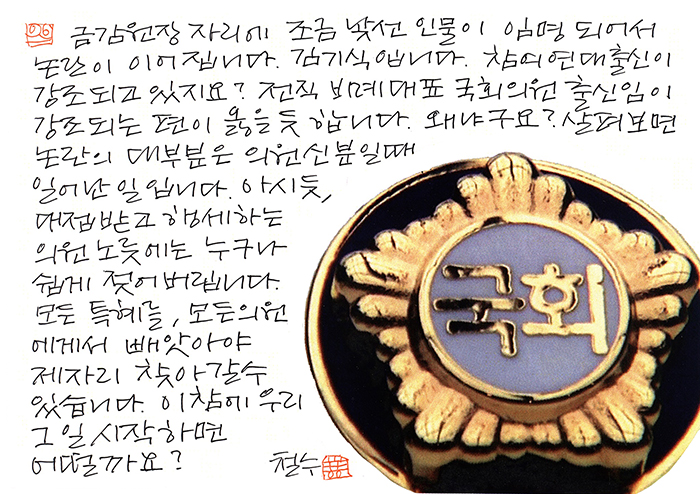 금감원장 자리에 조금 낯선 인물이 임명 되어서
논란이 이어집니다. 김기식입니다. 참여연대출신이
강조되고 있지요? 전직 비례대표 국회의원 출신임이
강조되는 편이 옳을듯 합니다. 왜냐구요? 살펴보면
논란의 대부분은 의원신분일때
일어난 일 입니다. 아시듯,
대접받고 행세하는
의원 노릇에는 누구나
쉽게 젖어버립니다.
모든 특혜를, 모든의원
에게서 빼앗아야
제자리 찾아갈수
있습니다. 이참에 우리
그 일 시작하면
어떨까요?
철수
국회